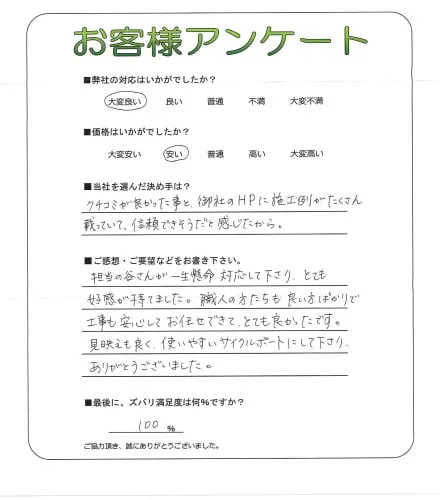 お客様アンケート
■弊社の対応はいかがでしたか?
大変良い 良い 普通 不満 大変不満
■価格はいかがでしたか?
大変安い 安い 普通 高い 大変高い
■当社を選んだ決め手は?
クチコミが良かった事と、御社のHPに施工例がたくさん
載っていて、信頼できそうだと感じたから。
■ご感想・ご要望などをお書き下さい。
担当の谷さんが一生懸命対応して下さり、とても
好感が持てました。職人の方たちも良い方ばかりで
工事も安心してお任せできて、とても良かったです。
見映えも良く、使いやすいサイクルポートにして下さり、
ありがとうございました。
■最後に、ズバリ満足度は何%ですか?
100 %
ご協力頂き、誠にありがとうございました。